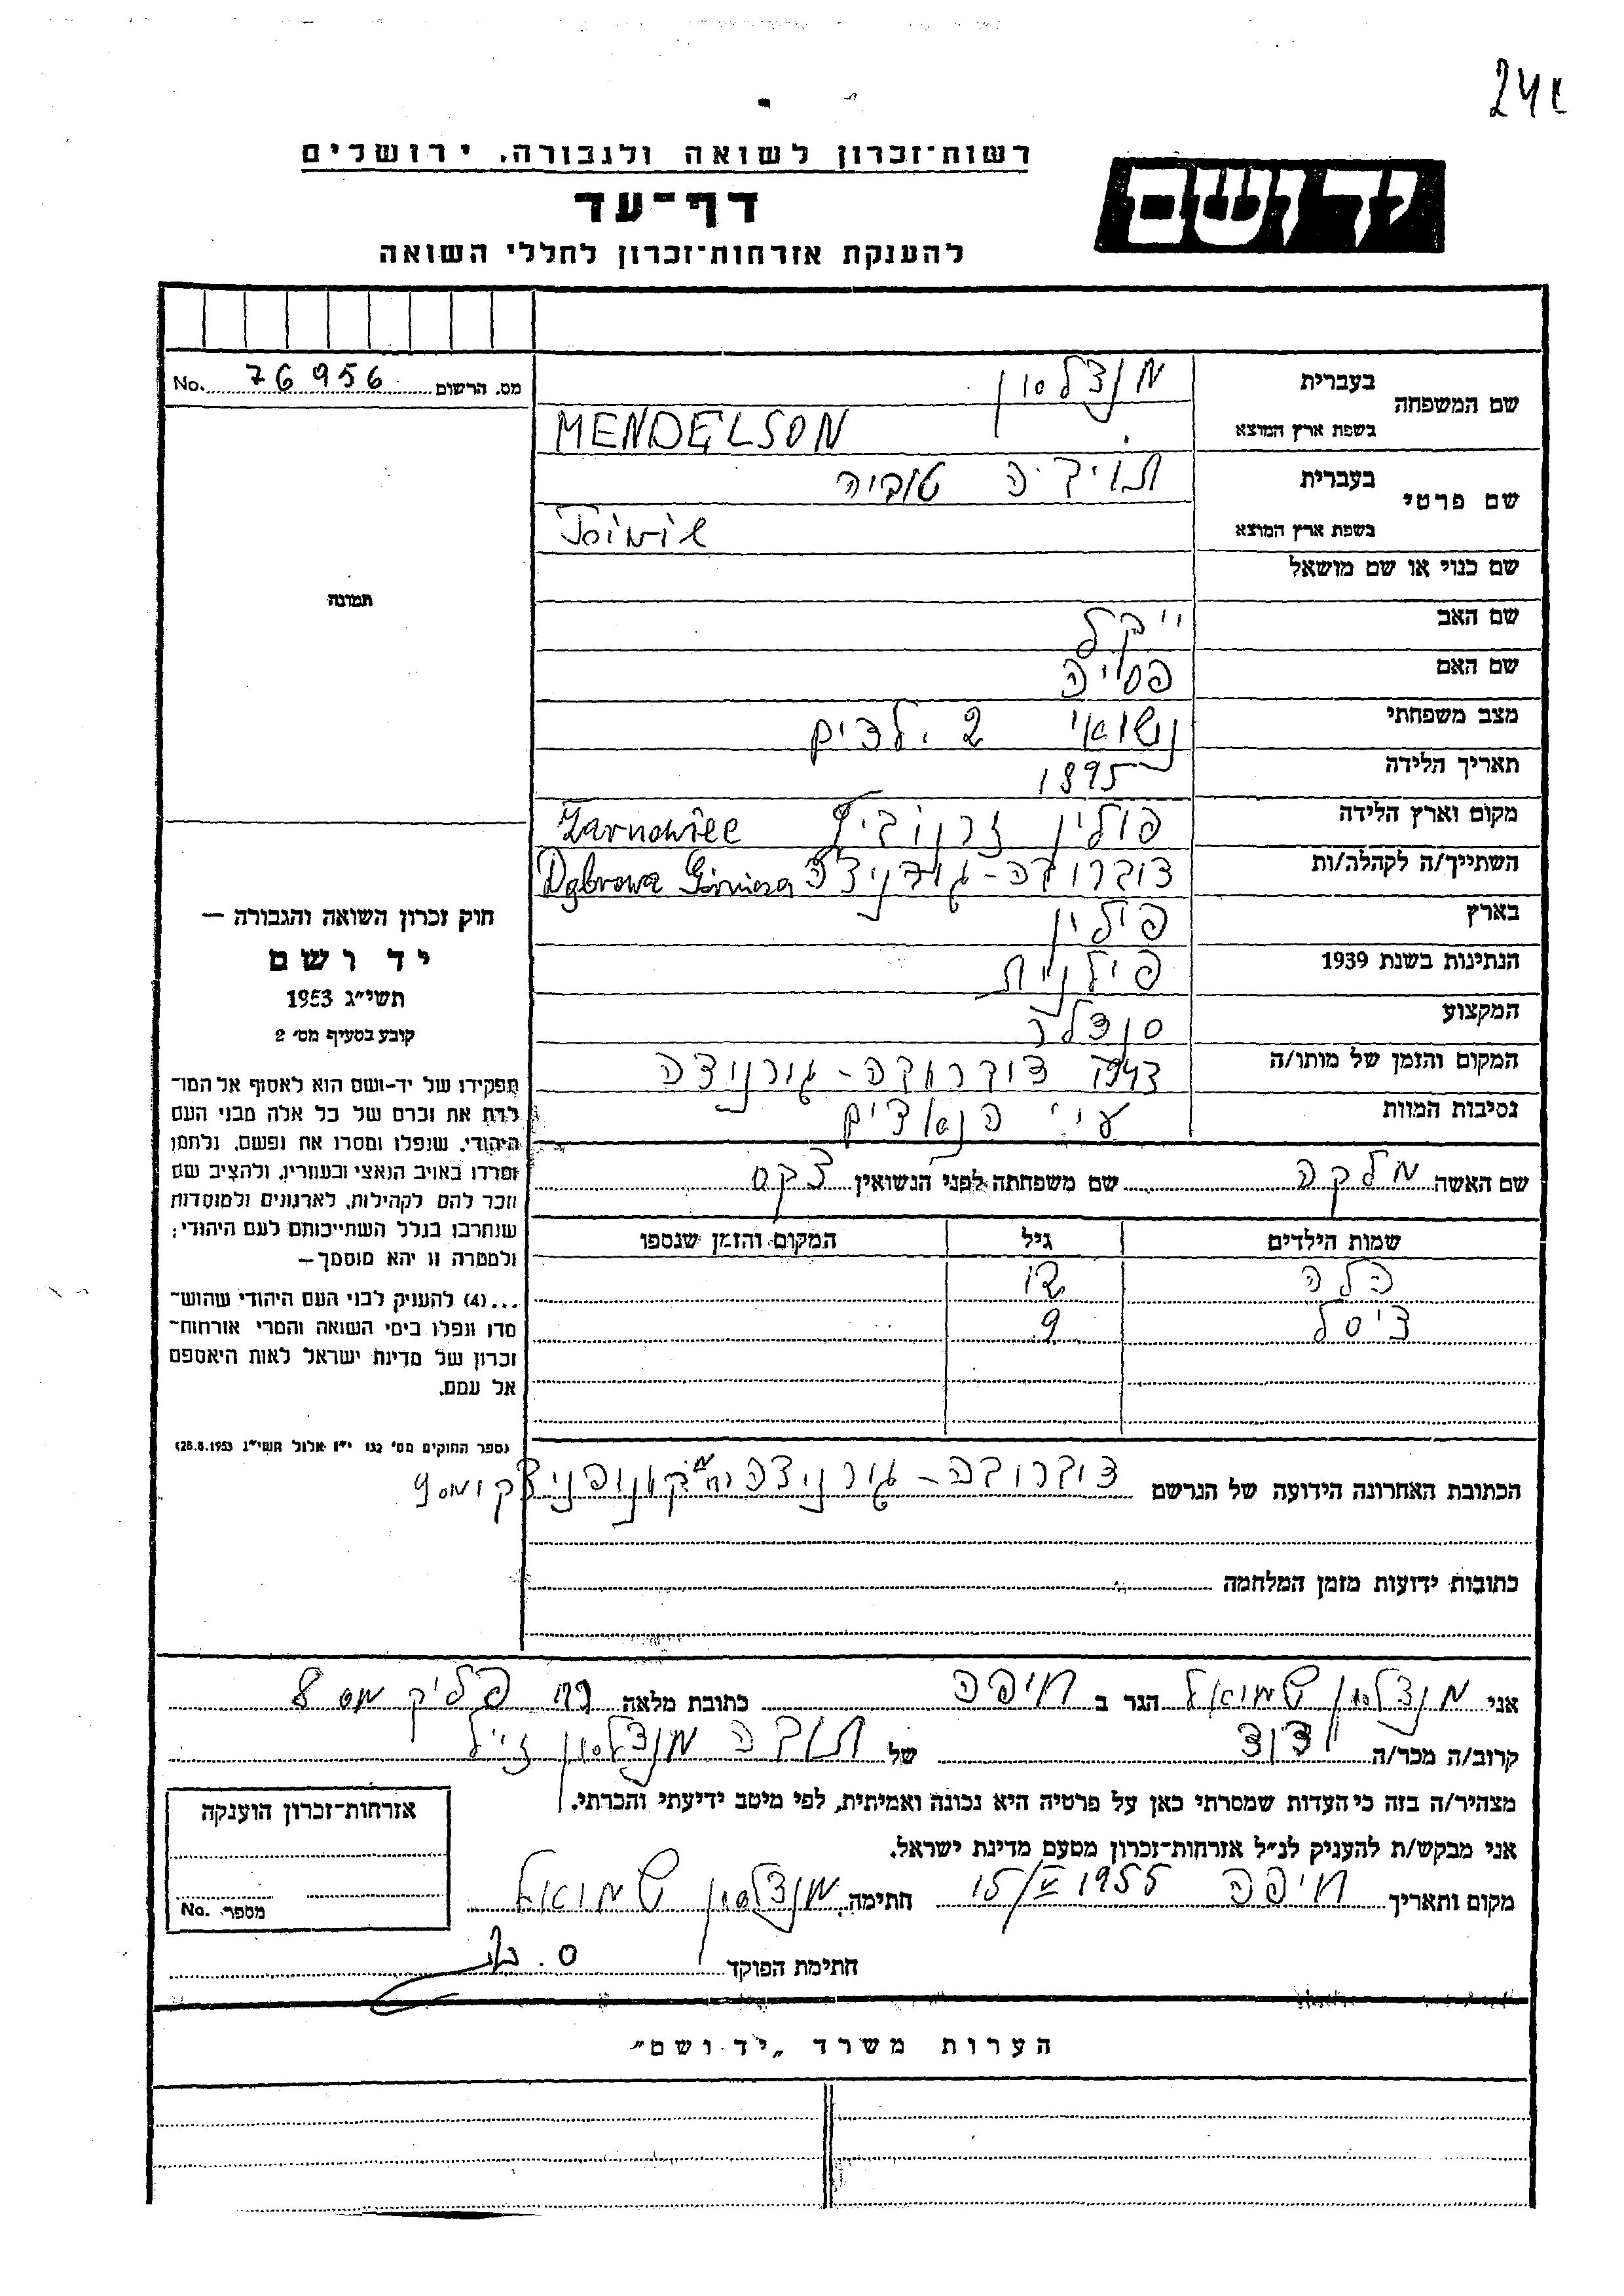 רשות־זכרון לשואה ולגבורה, ירושלים
יד ושם
דף־עד
להענקת אזרחות־זכרון לחללי השואה
מס. הרשום 76956 No.
שם המשפחה בעברית מנדלסון
בשפת ארץ המוצא MENDELSON
שם פרטי בעברית טוביה
בשפת ארץ המוצא
שם כנוי או שם מושאל
שם האב יקל
שם האם פסיה
מצב משפחתי נשואי 2 ילדים
תאריך הלידה 1895
מקום וארץ הלידה פולין Żarnowiec
השתייך/ה לקהלה/ות דוברובה-גורניצה Dąbrowa Górnicza
בארץ פולין
הנתינות בשנת 1939 פולנית
המקצוע סנדלר
המקום והזמן של מותו/ה דוברובה-גורניצה
נסיבות המוות ע״י הנאצים
שם האשה מלכה שם משפחתה לפני הנשואין
שמות הילדים גיל המקום והזמן שנספו
הלה
ציסל 9
הכתובת האחרונה הידועה של הנרשם דוברובה-גורניצה
כתובות ידועות מזמן המלחמה
תמונה
חוק זכרון השואה והגבורה —
יד ושם
תשי״ג 1953
קובע בסעיף מס׳ 2
תפקידו של יד-ושם הוא לאסוף אל המו־
לדת את זכרם של כל אלה מבני העם
היהודי, שנפלו ומסרו את נפשם, נלחמו
ומרדו באויב הנאצי ובעוזריו, ולהציב שם
וזכר להם לקהילות, לארגונים ולמוסדות
שנחרבו בגלל השתייכותם לעם היהודי;
ולמטרה זו יהא מוסמך—
...(4) להעניק לבני העם היהודי שהוש־
מדו ונפלו בימי השואה והמרי אזרחות־
זכרון של מדינת ישראל לאות היאספם
אל עמם.
(ספר החוקים מס׳ 132 י״ז אלול תשי״ג 28.8.1953)
אני מנדלסון שמואל הגר ב חיפה כתובת מלאה רח׳ מס 8
קרוב/ה מכר/ה דוד של טוביה מנדלסון ז״ל
מצהיר/ה בזה כי העדות שמסרתי כאן על פרטיה היא נכונה ואמיתית, לפי מיטב ידיעתי והכרתי.
אני מבקש/ת להעניק לנ״ל אזרחות־זכרון מטעם מדינת ישראל.
מקום ותאריך חיפה 15/V 1955 חתימה מנדלסון שמואל
חתימת הפוקד
אזרחות־זכרון הוענקה
מספר No.
הערות משרד „יד ושם”